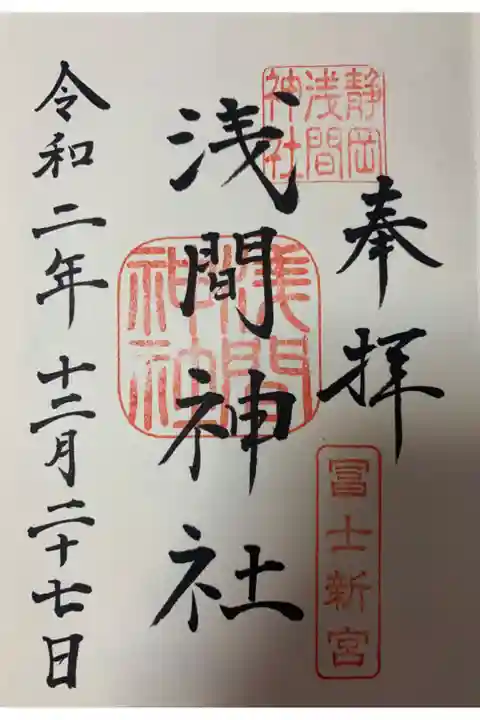 奉拝
冨士新宮
静岡
浅間
神社
浅間神社
浅間
神社
令和二年十二月二十七日